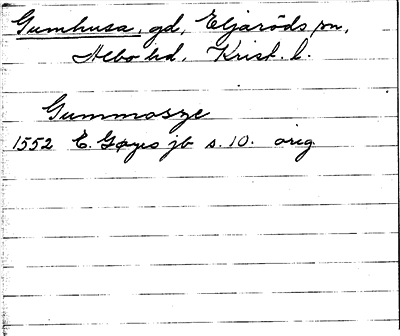 Gumhusa, gd, Eljaröds sn,
Albo hd, Krist. l.
Gummosze
1552 E. Gøyes jb s. 10. orig.